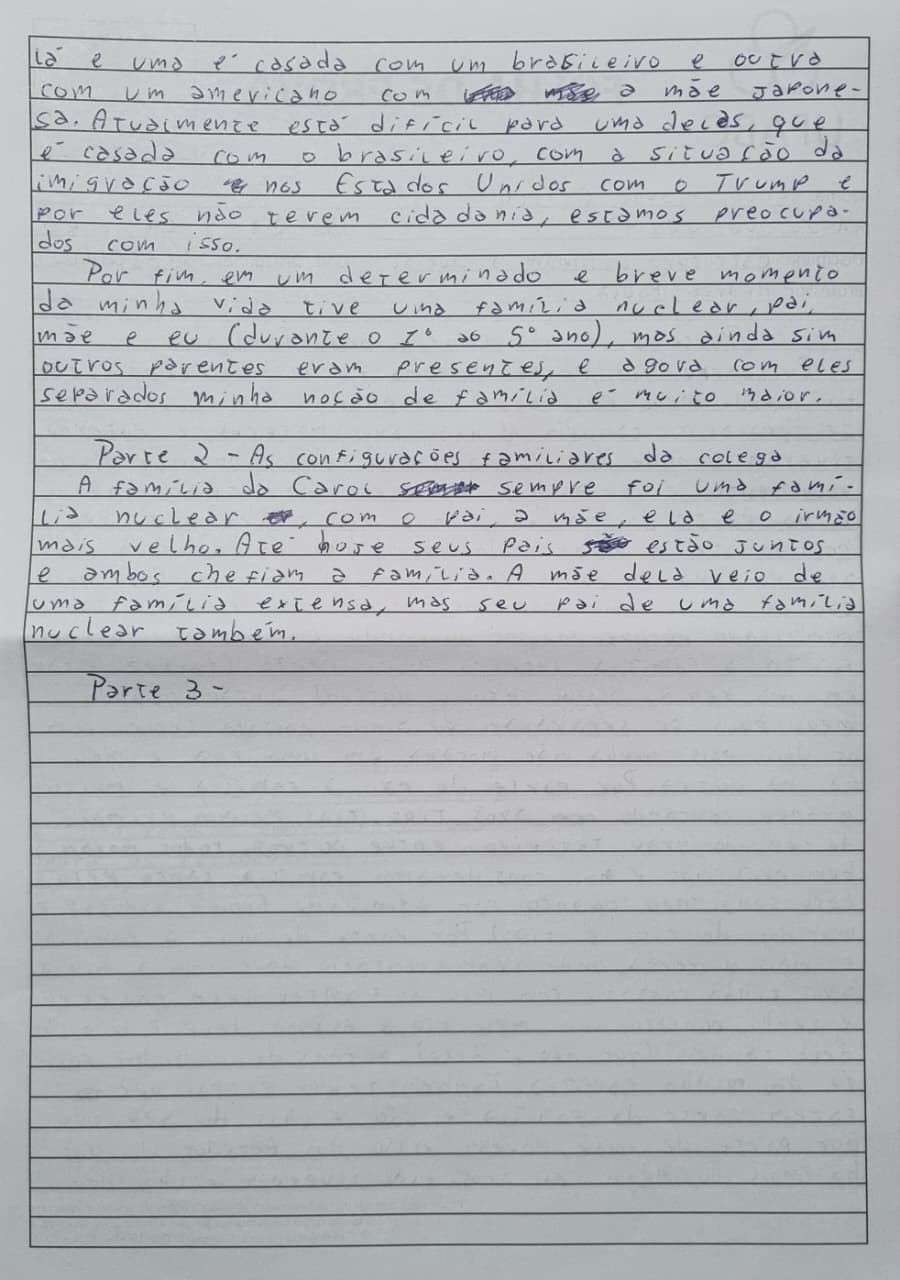 lá e uma é casada com um brasileiro e outra
com um americano com a mãe Japone-
sa. Atualmente está difícil para uma delas, que
é casada com o brasileiro, com a situação da
imigração nos Estados Unidos com o Trump e
por eles não terem cidadania, estamos preocupa-
dos com isso.
Por fim, em um determinado e breve momento
da minha vida tive uma família nuclear, pai,
mãe e eu (durante o 1° ao 5° ano), mas ainda sim
outros parentes eram presentes, e agora com eles
separados minha noção de família é muito maior.
Parte 2 - As configurações familiares da colega
A família da Carol sempre foi uma famí-
lia nuclear, com o pai, a mãe, ela e o irmão
mais velho. Até hoje seus pais estão juntos
e ambos chefiam a família. A mãe dela veio de
uma família extensa, mas seu pai de uma família
nuclear também.
Parte 3 -